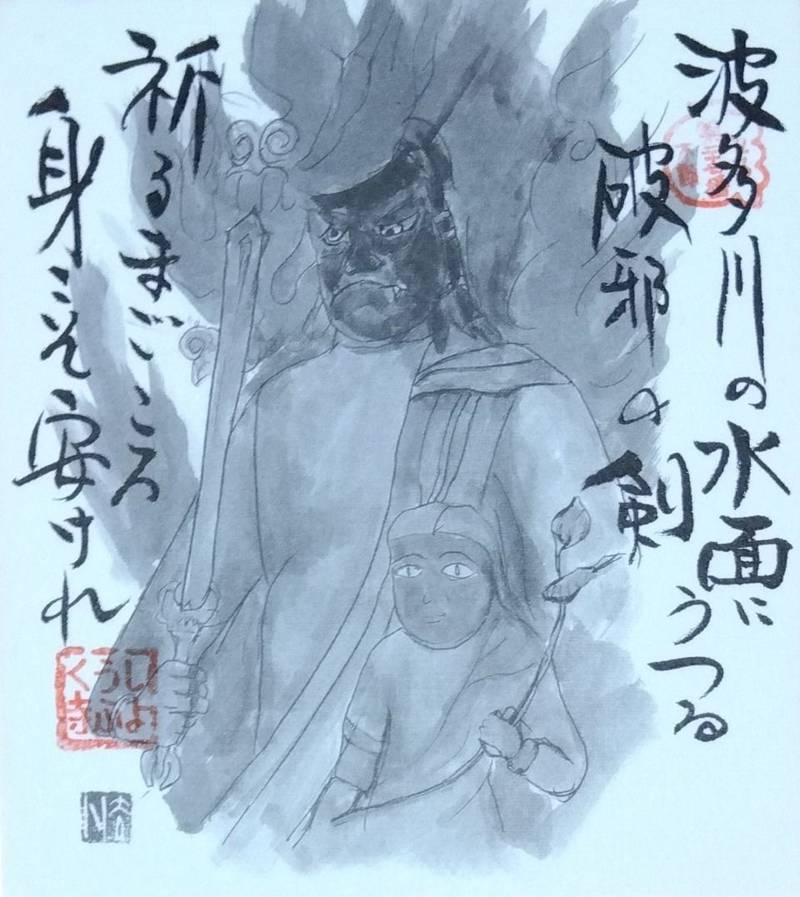 波多川の水面にうつる
破邪の剣
祈るまごころ
身こそ安けれ
しよ
うふ
く寺